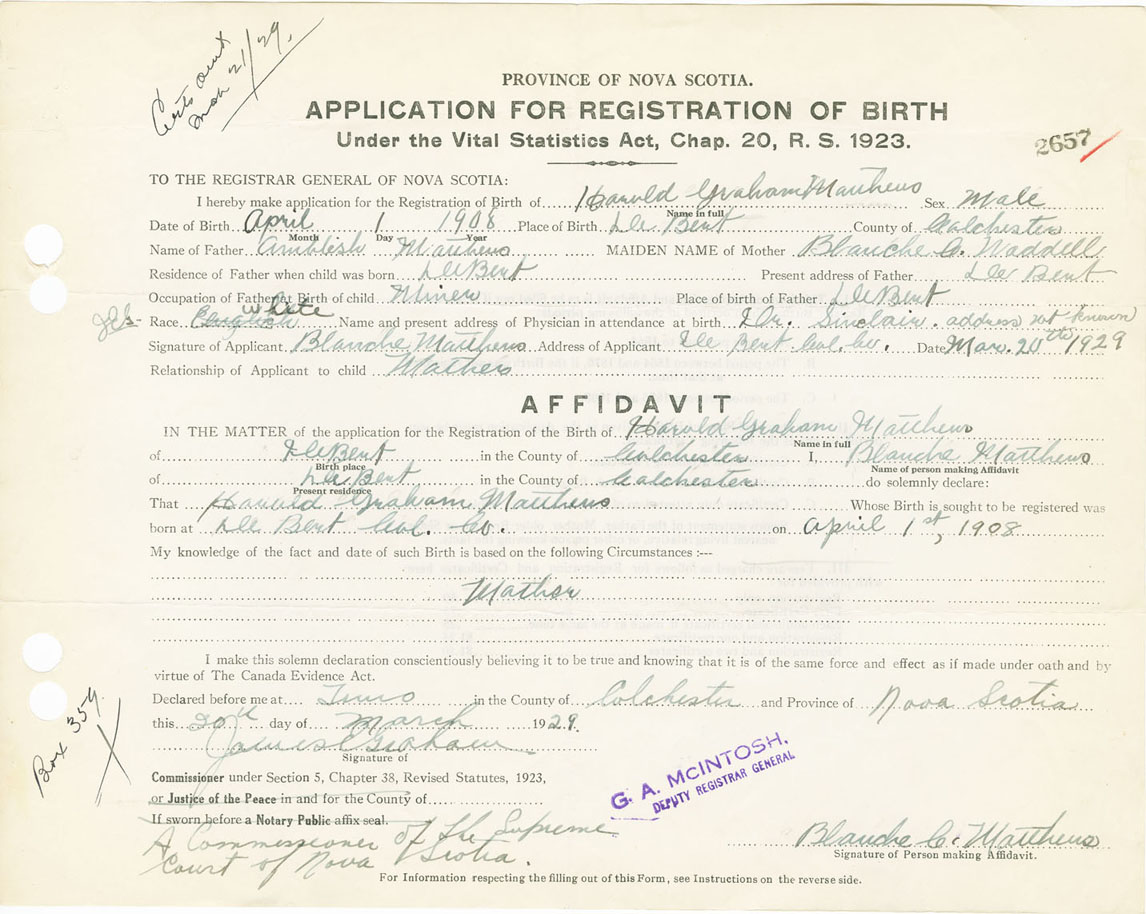 Certs sent
Mch 21/29.
PROVINCE OF NOVA SCOTIA.
APPLICATION FOR REGISTRATION OF BIRTH
Under the Vital Statistics Act, Chap. 20, R. S. 1923.
2657
TO THE REGISTRAR GENERAL OF NOVA SCOTIA:
I hereby make application for the Registration of Birth of Harold Graham Matthews Sex Male
Name in full
Date of Birth April 1 1908 Place of Birth De Bert County of Colchester
Month Day Year
Name of Father Matthews MAIDEN NAME of Mother Blanche C. Waddell
Residence of Father when child was born DeBert Present address of Father De Bert
Occupation of Father at Birth of child Miner Place of birth of Father DeBert
white
Race English Name and present address of Physician in attendance at birth Dr. Sinclair. address not known
Signature of Applicant Blanche Matthews Address of Applicant De Bert Col. Co. Date Mar. 20th 1929
Relationship of Applicant to child Mother
AFFIDAVIT
IN THE MATTER of the application for the Registration of the Birth of Harold Graham Matthews
Name in full
of DeBert in the County of Colchester I, Blanche Matthews
Birth place Name of person making Affidavit
of De Bert in the County of Colchester do solemnly declare:
Present residence
That Harold Graham Matthews Whose Birth is sought to be registered was
born at De Bert Col. Co. on April 1st, 1908
My knowledge of the fact and date of such Birth is based on the following Circumstances :---
Mother
I make this solemn declaration conscientiously believing it to be true and knowing that it is of the same force and effect as if made under oath and by
virtue of The Canada Evidence Act.
Declared before me at Truro in the County of Colchester and Province of Nova Scotia
this 20th day of March 1929.
James E Graham
Signature of
Commissioner under Section 5, Chapter 38, Revised Statutes, 1923,
or Justice of the Peace in and for the County of
If sworn before a Notary Public affix seal.
A Commissioner of the Supreme
Court of Nova Scotia.
Box 359.
G. A. McINTOSH,
DEPUTY REGISTRAR GENERAL
Blanche C. Matthews
Signature of Person making Affidavit.
For Information respecting the filling out of this Form, see Instructions on the reverse side.